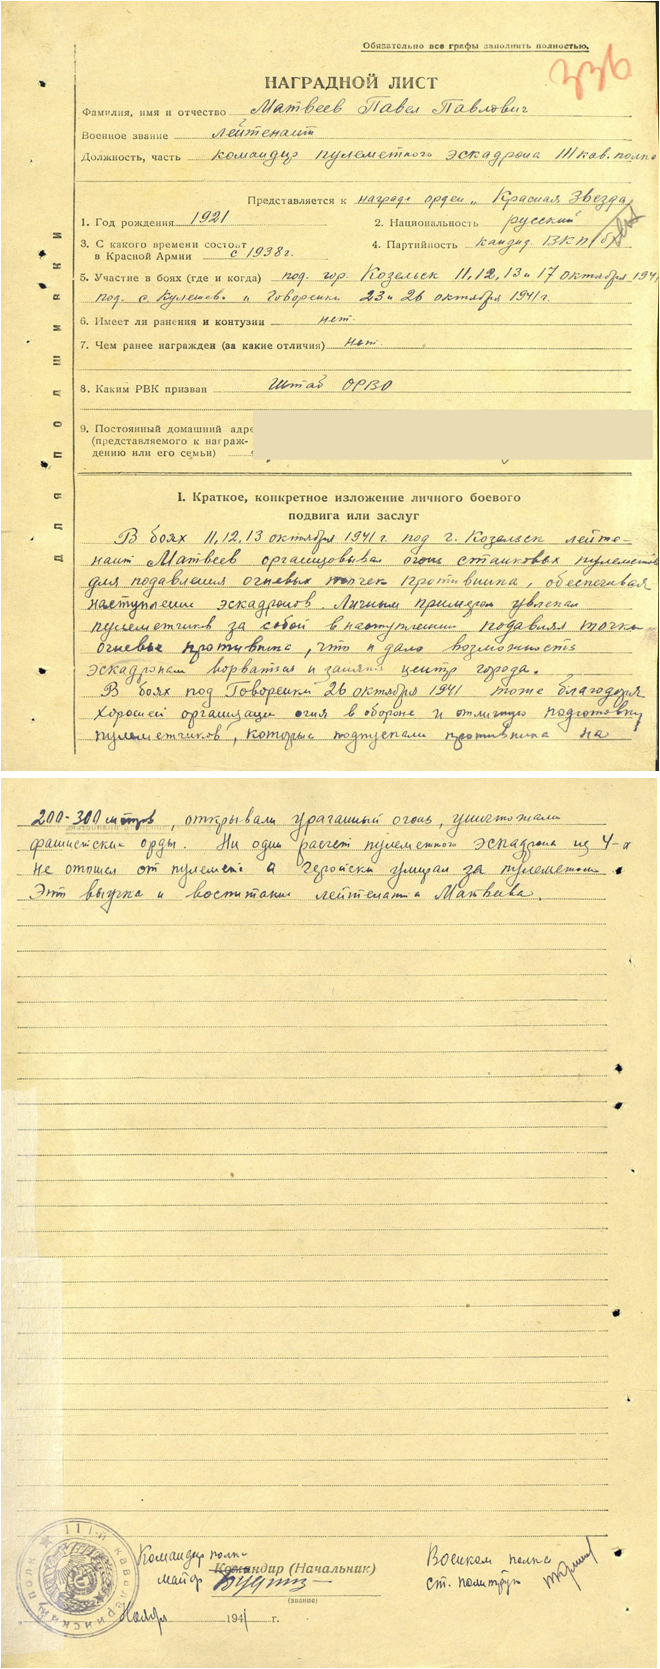 Обязательно все графы заполнить полностью.
336
НАГРАДНОЙ ЛИСТ
Фамилия, имя и отчество Матвеев Павел Павлович
Военное звание лейтенант
Должность, часть командир пулеметного эскадрона III кав. полка
Представляется к награде орден „Красная Звезда
1. Год рождения 1921 2. Национальность русский
3. С какого времени состоит
в Красной Армии с 1938г. 4. Партийность кандид. ВКП(б)
5. Участие в боях (где и когда) под гор. Козельск 11,12,13 и 17 октября 1941
под с. Кулешево и Говоренки 23 и 26 октября 1941 г.
6. Имеет ли ранения и контузии нет
7. Чем ранее награжден (за какие отличия) нет
8. Каким РВК призван Штаб ОРВО
9. Постоянный домашний адре
(представляемого к награж-
дению или его семьи)
для подшивки
I. Краткое, конкретное изложение личного боевого
подвига или заслуг
В боях 11,12,13 октября 1941 г. под г. Козельск лейте-
нант Матвеев организовывал огонь станковых пулеметов
для подавления огневых точек противника, обеспечивая
наступление эскадронов. Личным примером увлекал
пулеметчиков за собой в наступлении подавлял точки
огневые противника, что и дало возможность
эскадронам ворваться и занять центр города.
В боях под Говоренки 26 октября 1941 тоже благодаря
хорошей организации огня в обороне и отличную подготовку
пулеметчиков, которые подпускали противника на
200-300 метров, открывали ураганный огонь, уничтожали
фашистские орды. Ни один расчет пулеметного эскадрона из 4-х
не отошел от пулемета а Геройски умирал за пулеметом.
Этт выучка и воспитание лейтенанта Матвеева.
111-й кавалерийский полк
Командир полка
Командир (Начальник)
майор
(звание)
Ноября 1941 г.
Военком полка
ст. политрук